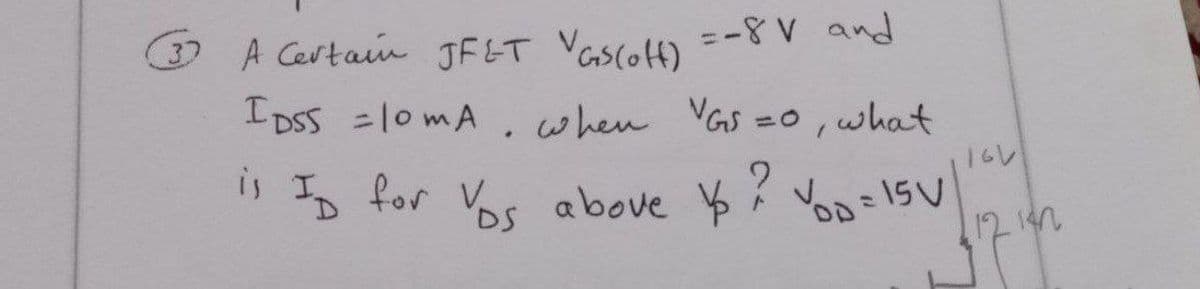 ③ A Certain JFET VGS(off) = -8 V and
IDSS = 10 mA . when VGS = 0 , what
is ID for VDS above Vp ? VDD = 15V
16V
12